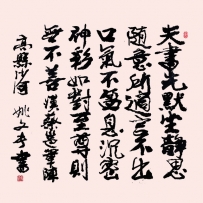 夫書先默坐靜思
隨意所適言不出
口氣不盈息沉密
神彩如對至尊則
無不善矣蔡邕筆
沙河 姚文 書